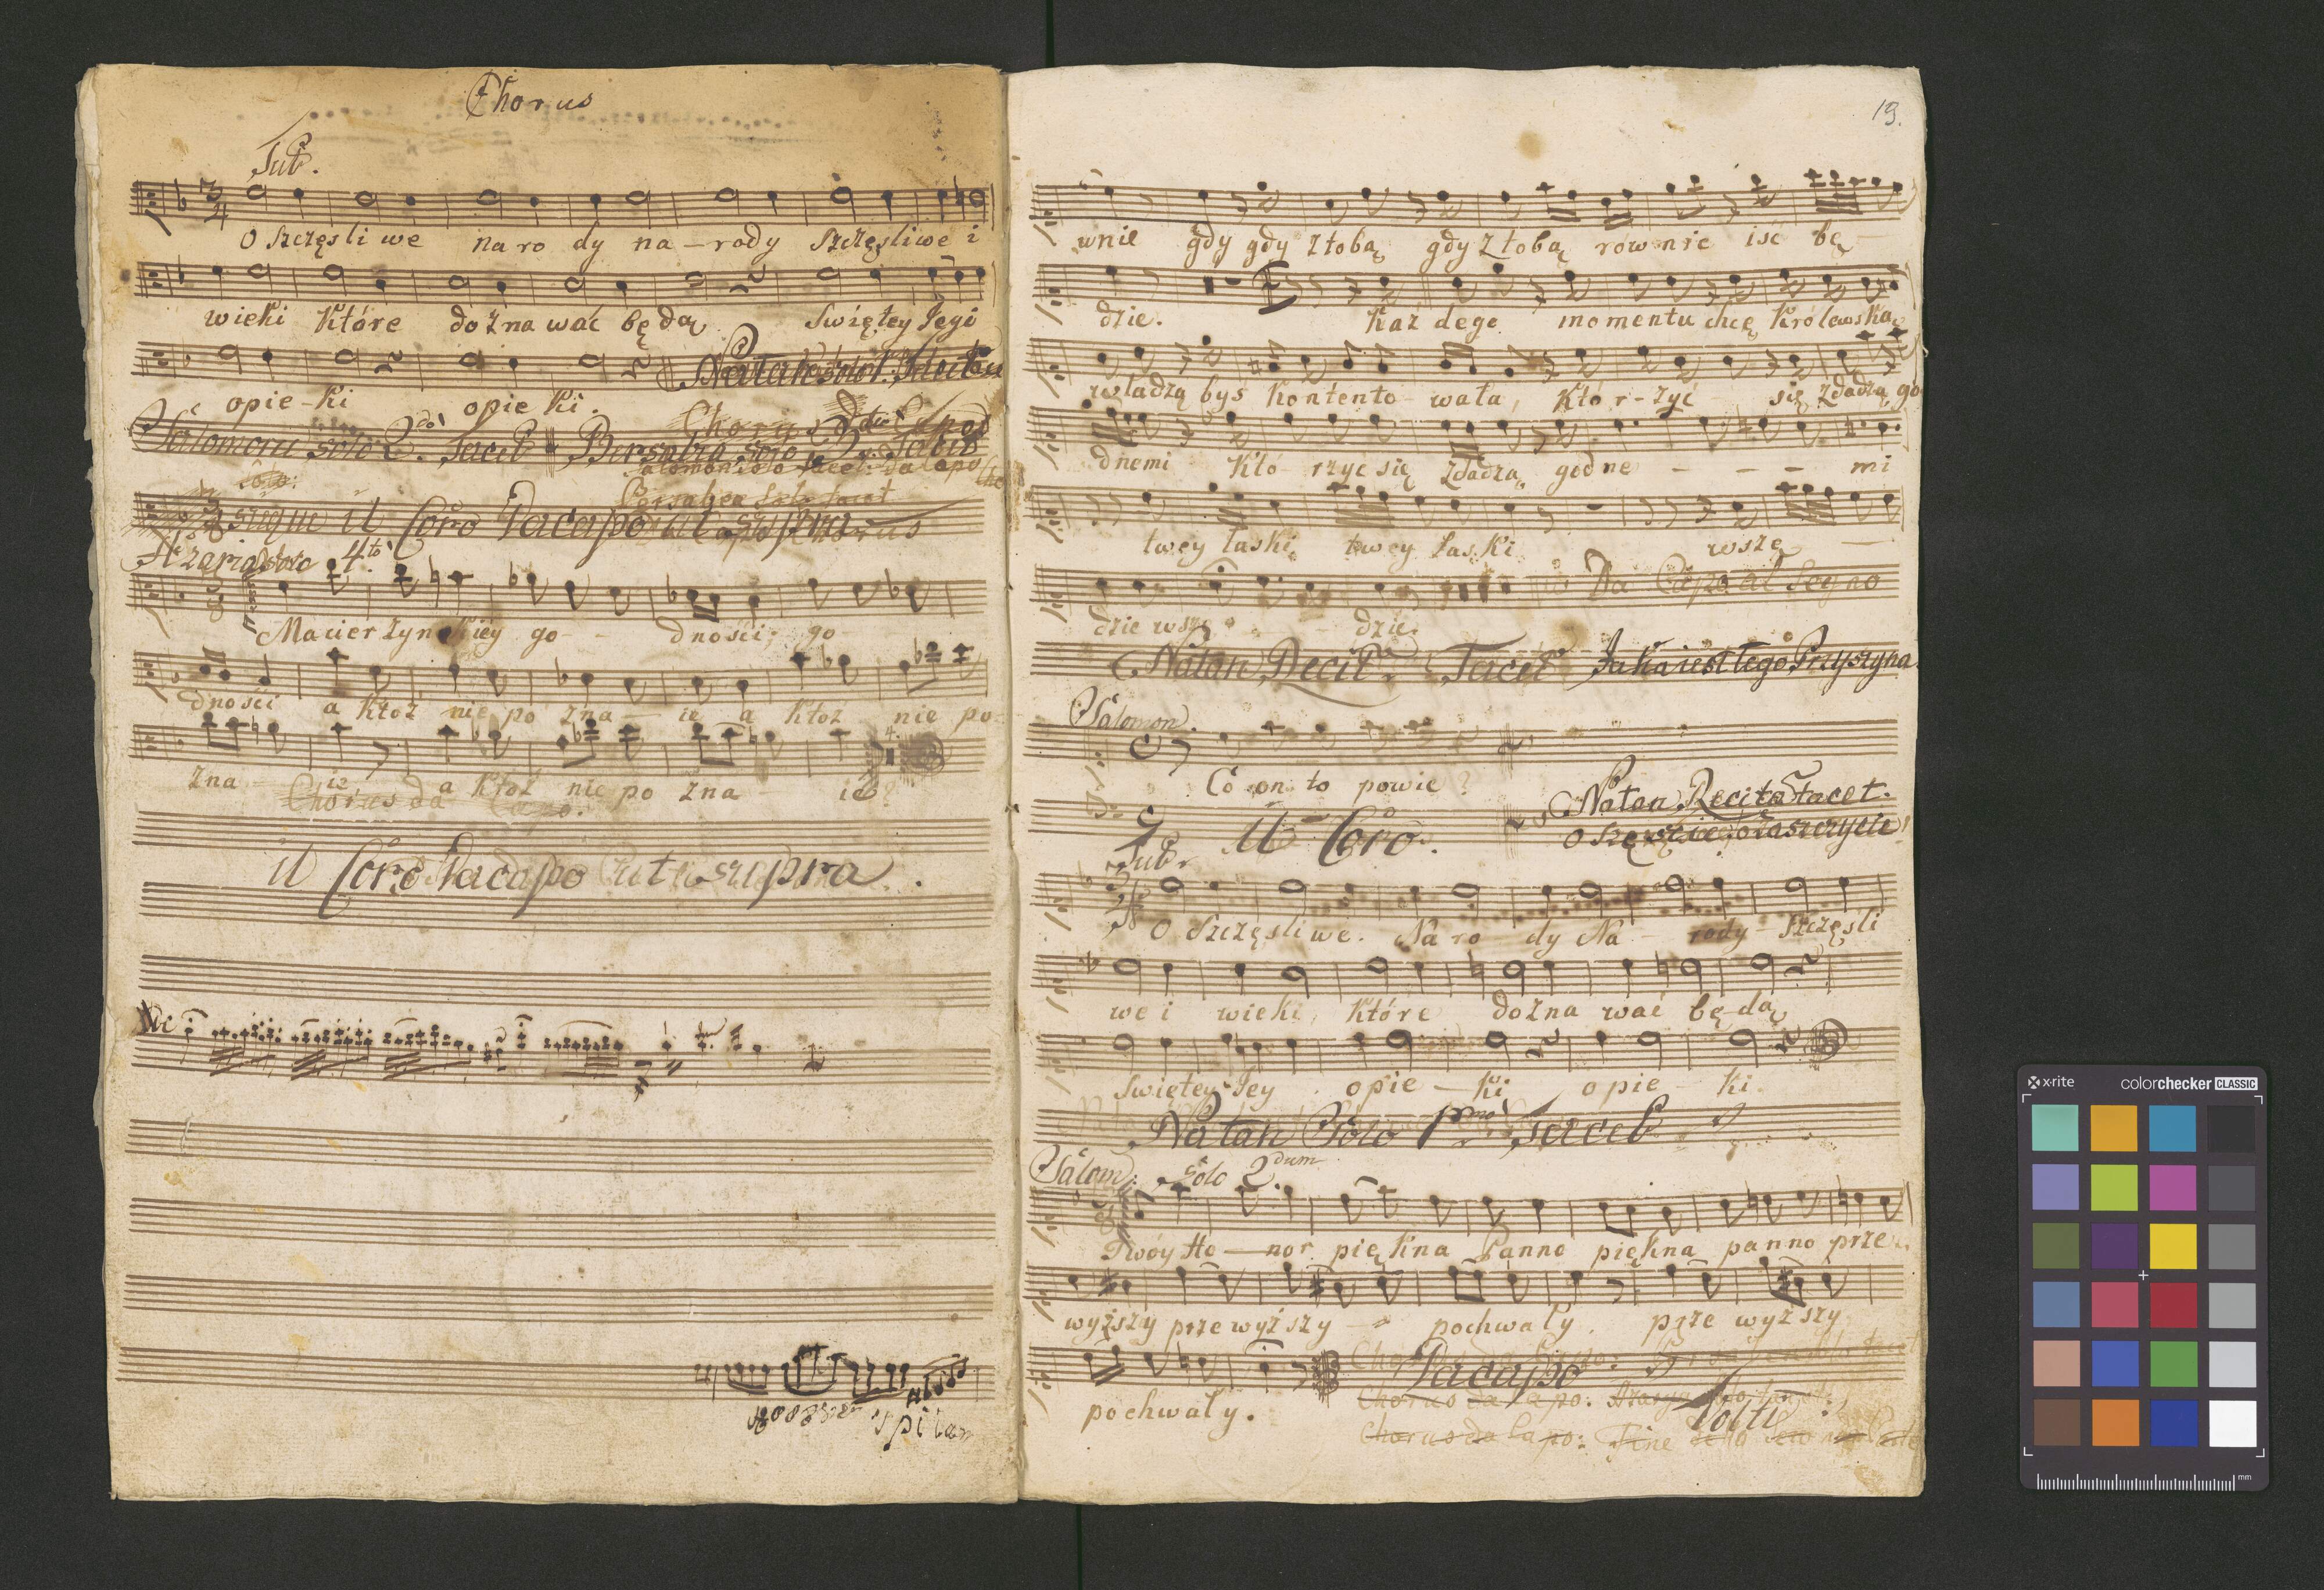 Chorus
Tut.
O szczęsli we na ro dy na – rody szczęsliwe i
wieki Które dozna wać będą Swiętey Jegi
Natan Solo
opie – ki opie ki.
Chorus
Salomonu Solo 2do Tacet Bersabea Solo 3
Salomon Solo tacet Da Capo
Solo:
Bersabea Solo tacet
segue il Coro Dacapo ut supra
Azaria Solo 4to
Macier zynskiey go – dności, go
dności a Ktoż nie po zna – ie a ktoż nie po
zna – ie a Ktoż nie po zna – ie?
Chorus da Capo.
il Coro Dacapo ut supra.
19.
wnie gdy gdy z tobą gdy z tobą rownie iść bę –
dzie. Każ dego momentu chcę Królewską
władzą byś Kontento – wała, Któ r – zyć się zdadzą go
dnemi Któ rzyć się zdadzą godne – – – mi
twey łaski twey łaski wszę –
dzie wszę – dzie. Da Capo al Segno
Natan Recit. Tacet Jaka iest tego Przyszyna
Salomon.
Co on to powie?
Natan Recita tacet.
il Coro.
Tut.
O Szczęsliwe Na ro dy Na – rody – szczęśli
we i wieki, które dozna wać będą
Swiętey Jey opie – ki opie – ki.
Natan Solo Pmo Tacet
Salom: Solo 2dum
Twóy Ho – nor piękna Panno piękna panno prze
wyższy przewyż szy – pochwały. prze wyż szy
Dacapo
pochwały. Chorus da Capo:
Volti
Chorus da Capo: Fine